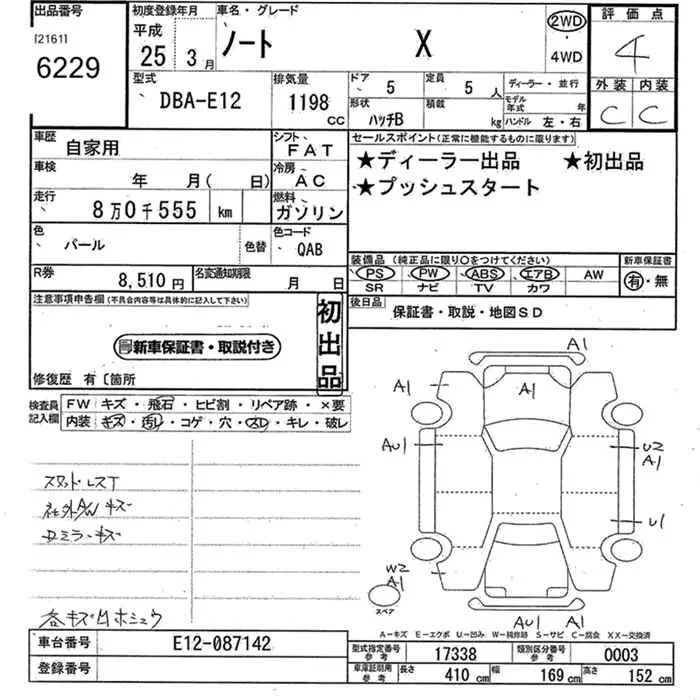 出品番号
[2161]
6229
初度登録年月
平成
25 年 3 月
車名・グレード
ノート X
2WD
・
4WD
評価点
4
外装 内装
C C
型式
DBA-E12
排気量
1198 CC
ドア 5
定員 5 人
形状 ハッチB
積載 kg
ディーラー・並行
モデル年式 年
ハンドル 左・右
車歴 自家用
シフト FAT
車検 年 月( 日)
冷房 AC
走行 8万0千555 km
燃料 ガソリン
色 パール 色替
色コード QAB
R券 8,510円
名変通知期限 月 日
セールスポイント(正常に機能するものに限ります)
★ディーラー出品 ★初出品
★プッシュスタート
装備品 (純正品に限り○をつけてください)
PS PW ABS エアB AW
SR ナビ TV カワ
新車保証書
有・無
後日品 保証書・取説・地図SD
注意事項申告欄(不具合内容等は具体的に記入して下さい)
新車保証書・取説付き
初出品
修復歴 有〔箇所
検査員記入欄
FW キズ・飛石・ヒビ割・リペア跡・×要
内装 キズ・汚レ・コゲ・穴・スレ・キレ・破レ
スタッドレスT
社外A/W キズ
ロミラーキズ
各キズ凹ホシュウ
A1
A1
A1
A1
AU1
U2
A1
U1
W2
A1
スペア
AU1
A1
A−キズ E−エクボ U−凹み W−補修跡 S−サビ C−腐食 XX−交換済
車台番号 E12-087142
登録番号
型式指定番号 参考 17338
類別区分番号 参考 0003
車庫証明用 参考 長さ 410 cm 幅 169 cm 高さ 152 cm